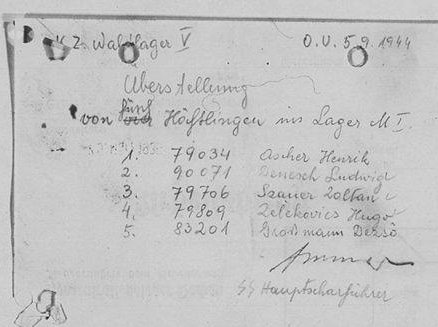 K.Z. Waldlager V O.U. 5.9.1944
Überstellung
von fünf Häftlingen ins Lager M I.
1. 79034 Ascher Henrik
2. 90071 Denesch Ludwig
3. 79706 Szauer Zoltan
4. 79809 Zelekovics Hugo
5. 83201 Großmann Dezsö
SS Hauptscharführer